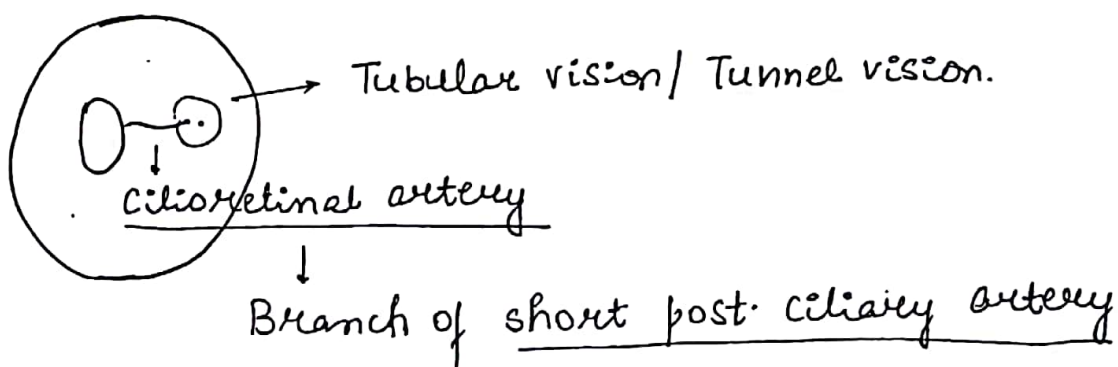 Tubular vision/ Tunnel vision.
cilioretinal artery
Branch of short post. ciliary artery